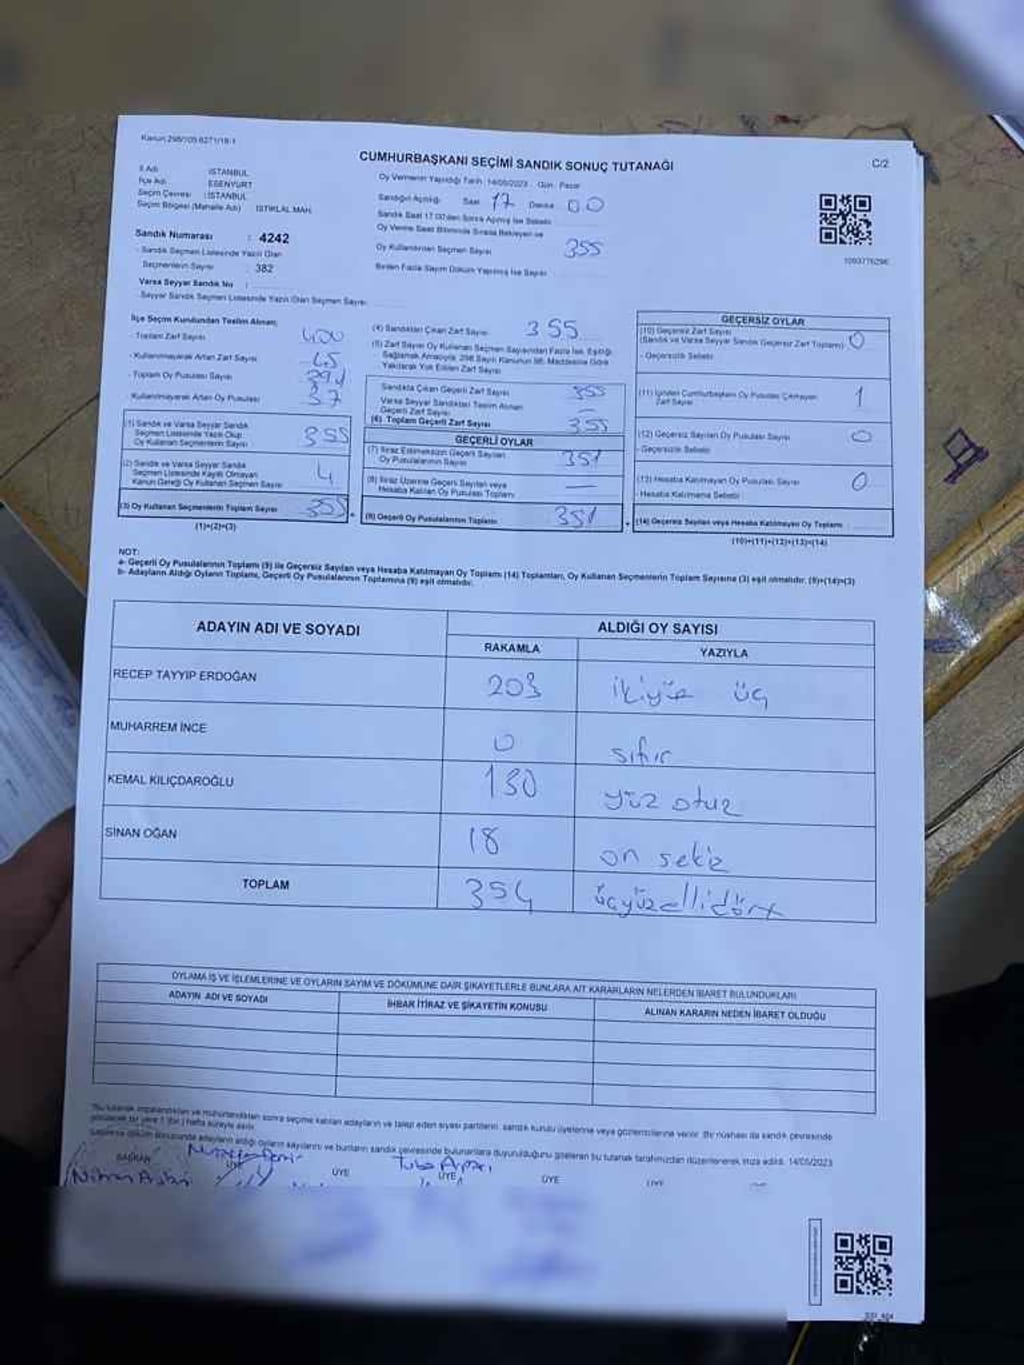 Kanun 298/105-6271/18-1
CUMHURBAŞKANI SEÇİMİ SANDIK SONUÇ TUTANAĞI
C/2
İl Adı : İSTANBUL
İlçe Adı : ESENYURT
Seçim Çevresi : İSTANBUL
Seçim Bölgesi (Mahalle Adı) : İSTİKLAL MAH.
Oy Vermenin Yapıldığı Tarih : 14/05/2023 Gün : Pazar
Sandığın Açıldığı : Saat 17 Dakika 00
Sandık Saat 17.00'den Sonra Açılmış İse Sebebi
Oy Verme Saati Bitiminde Sırada Bekleyen ve
Oy Kullanan Seçmen Sayısı 355
Birden Fazla Sayım Döküm Yapılmış İse Sayısı
Sandık Numarası : 4242
- Sandık Seçmen Listesinde Yazılı Olan
Seçmenlerin Sayısı : 382
Varsa Seyyar Sandık No :
- Seyyar Sandık Seçmen Listesinde Yazılı Olan Seçmen Sayısı
İlçe Seçim Kurulundan Teslim Alınan;
- Toplam Zarf Sayısı 400
- Kullanılmayarak Artan Zarf Sayısı 45
- Toplam Oy Pusulası Sayısı
- Kullanılmayarak Artan Oy Pusulası 37
(1) Sandık ve Varsa Seyyar Sandık
Seçmen Listesinde Yazılı Olup
Oy Kullanan Seçmenlerin Sayısı 355
(2) Sandık ve Varsa Seyyar Sandık
Seçmen Listesinde Kayıtlı Olmayan
Kanun Gereği Oy Kullanan Seçmen Sayısı 4
(3) Oy Kullanan Seçmenlerin Toplam Sayısı 355
(1)+(2)=(3)
(4) Sandıktan Çıkan Zarf Sayısı 355
(5) Zarf Sayısı Oy Kullanan Seçmen Sayısından Fazla İse, Eşitliği
Sağlamak Amacıyla, 298 Sayılı Kanunun 98. Maddesine Göre
Yakılarak Yok Edilen Zarf Sayısı
Sandıkta Çıkan Geçerli Zarf Sayısı 355
Varsa Seyyar Sandıktan Teslim Alınan
Geçerli Zarf Sayısı —
(6) Toplam Geçerli Zarf Sayısı 355
GEÇERLİ OYLAR
(7) İtiraz Edilmeksizin Geçerli Sayılan
Oy Pusulalarının Sayısı 351
(8) İtiraz Üzerine Geçerli Sayılan veya
Hesaba Katılan Oy Pusulaları Toplamı —
(9) Geçerli Oy Pusulalarının Toplamı 351
GEÇERSİZ OYLAR
(10) Geçersiz Zarf Sayısı
(Sandık ve Varsa Seyyar Sandık Geçersiz Zarf Toplamı) 0
- Geçersizlik Sebebi
(11) İçinden Cumhurbaşkanı Oy Pusulası Çıkmayan
Zarf Sayısı 1
(12) Geçersiz Sayılan Oy Pusulası Sayısı 0
- Geçersizlik Sebebi
(13) Hesaba Katılmayan Oy Pusulası Sayısı 0
- Hesaba Katılmama Sebebi
(14) Geçersiz Sayılan veya Hesaba Katılmayan Oy Toplamı
(10)+(11)+(12)+(13)=(14)
NOT:
a- Geçerli Oy Pusulalarının Toplamı (9) ile Geçersiz Sayılan veya Hesaba Katılmayan Oy Toplamı (14) Toplamları, Oy Kullanan Seçmenlerin Toplam Sayısına (3) eşit olmalıdır. (9)+(14)=(3)
b- Adayların Aldığı Oyların Toplamı, Geçerli Oy Pusulalarının Toplamına (9) eşit olmalıdır.
ADAYIN ADI VE SOYADI ALDIĞI OY SAYISI
RAKAMLA YAZIYLA
RECEP TAYYIP ERDOĞAN 203 ikiyüz üç
MUHARREM İNCE 0 sıfır
KEMAL KILIÇDAROĞLU 130 yüz otuz
SİNAN OĞAN 18 on sekiz
TOPLAM 354 üçyüzellidört
OYLAMA İŞ VE İŞLEMLERİNE VE OYLARIN SAYIM VE DÖKÜMÜNE DAİR ŞİKAYETLERLE BUNLARA AİT KARARLARIN NELERDEN İBARET BULUNDUKLARI
ADAYIN ADI VE SOYADI İHBAR İTİRAZ VE ŞİKAYETİN KONUSU ALINAN KARARIN NEDEN İBARET OLDUĞU
BAŞKAN ÜYE ÜYE ÜYE ÜYE ÜYE